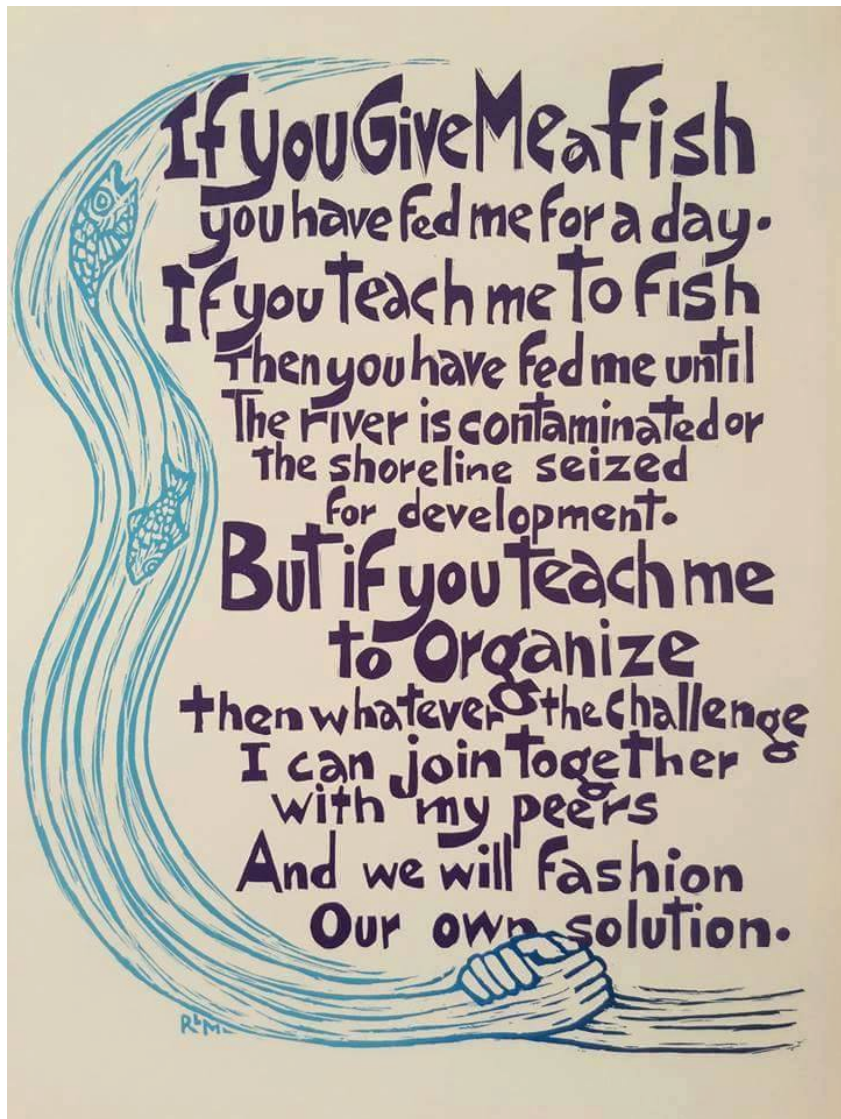 If you Give Me a Fish
you have fed me for a day.
If you teach me to fish
Then you have fed me until
The river is contaminated or
the shoreline seized
for development.
But if you teach me
to Organize
then whatever the challenge
I can join together
with my peers
And we will fashion
Our own solution.
RLM